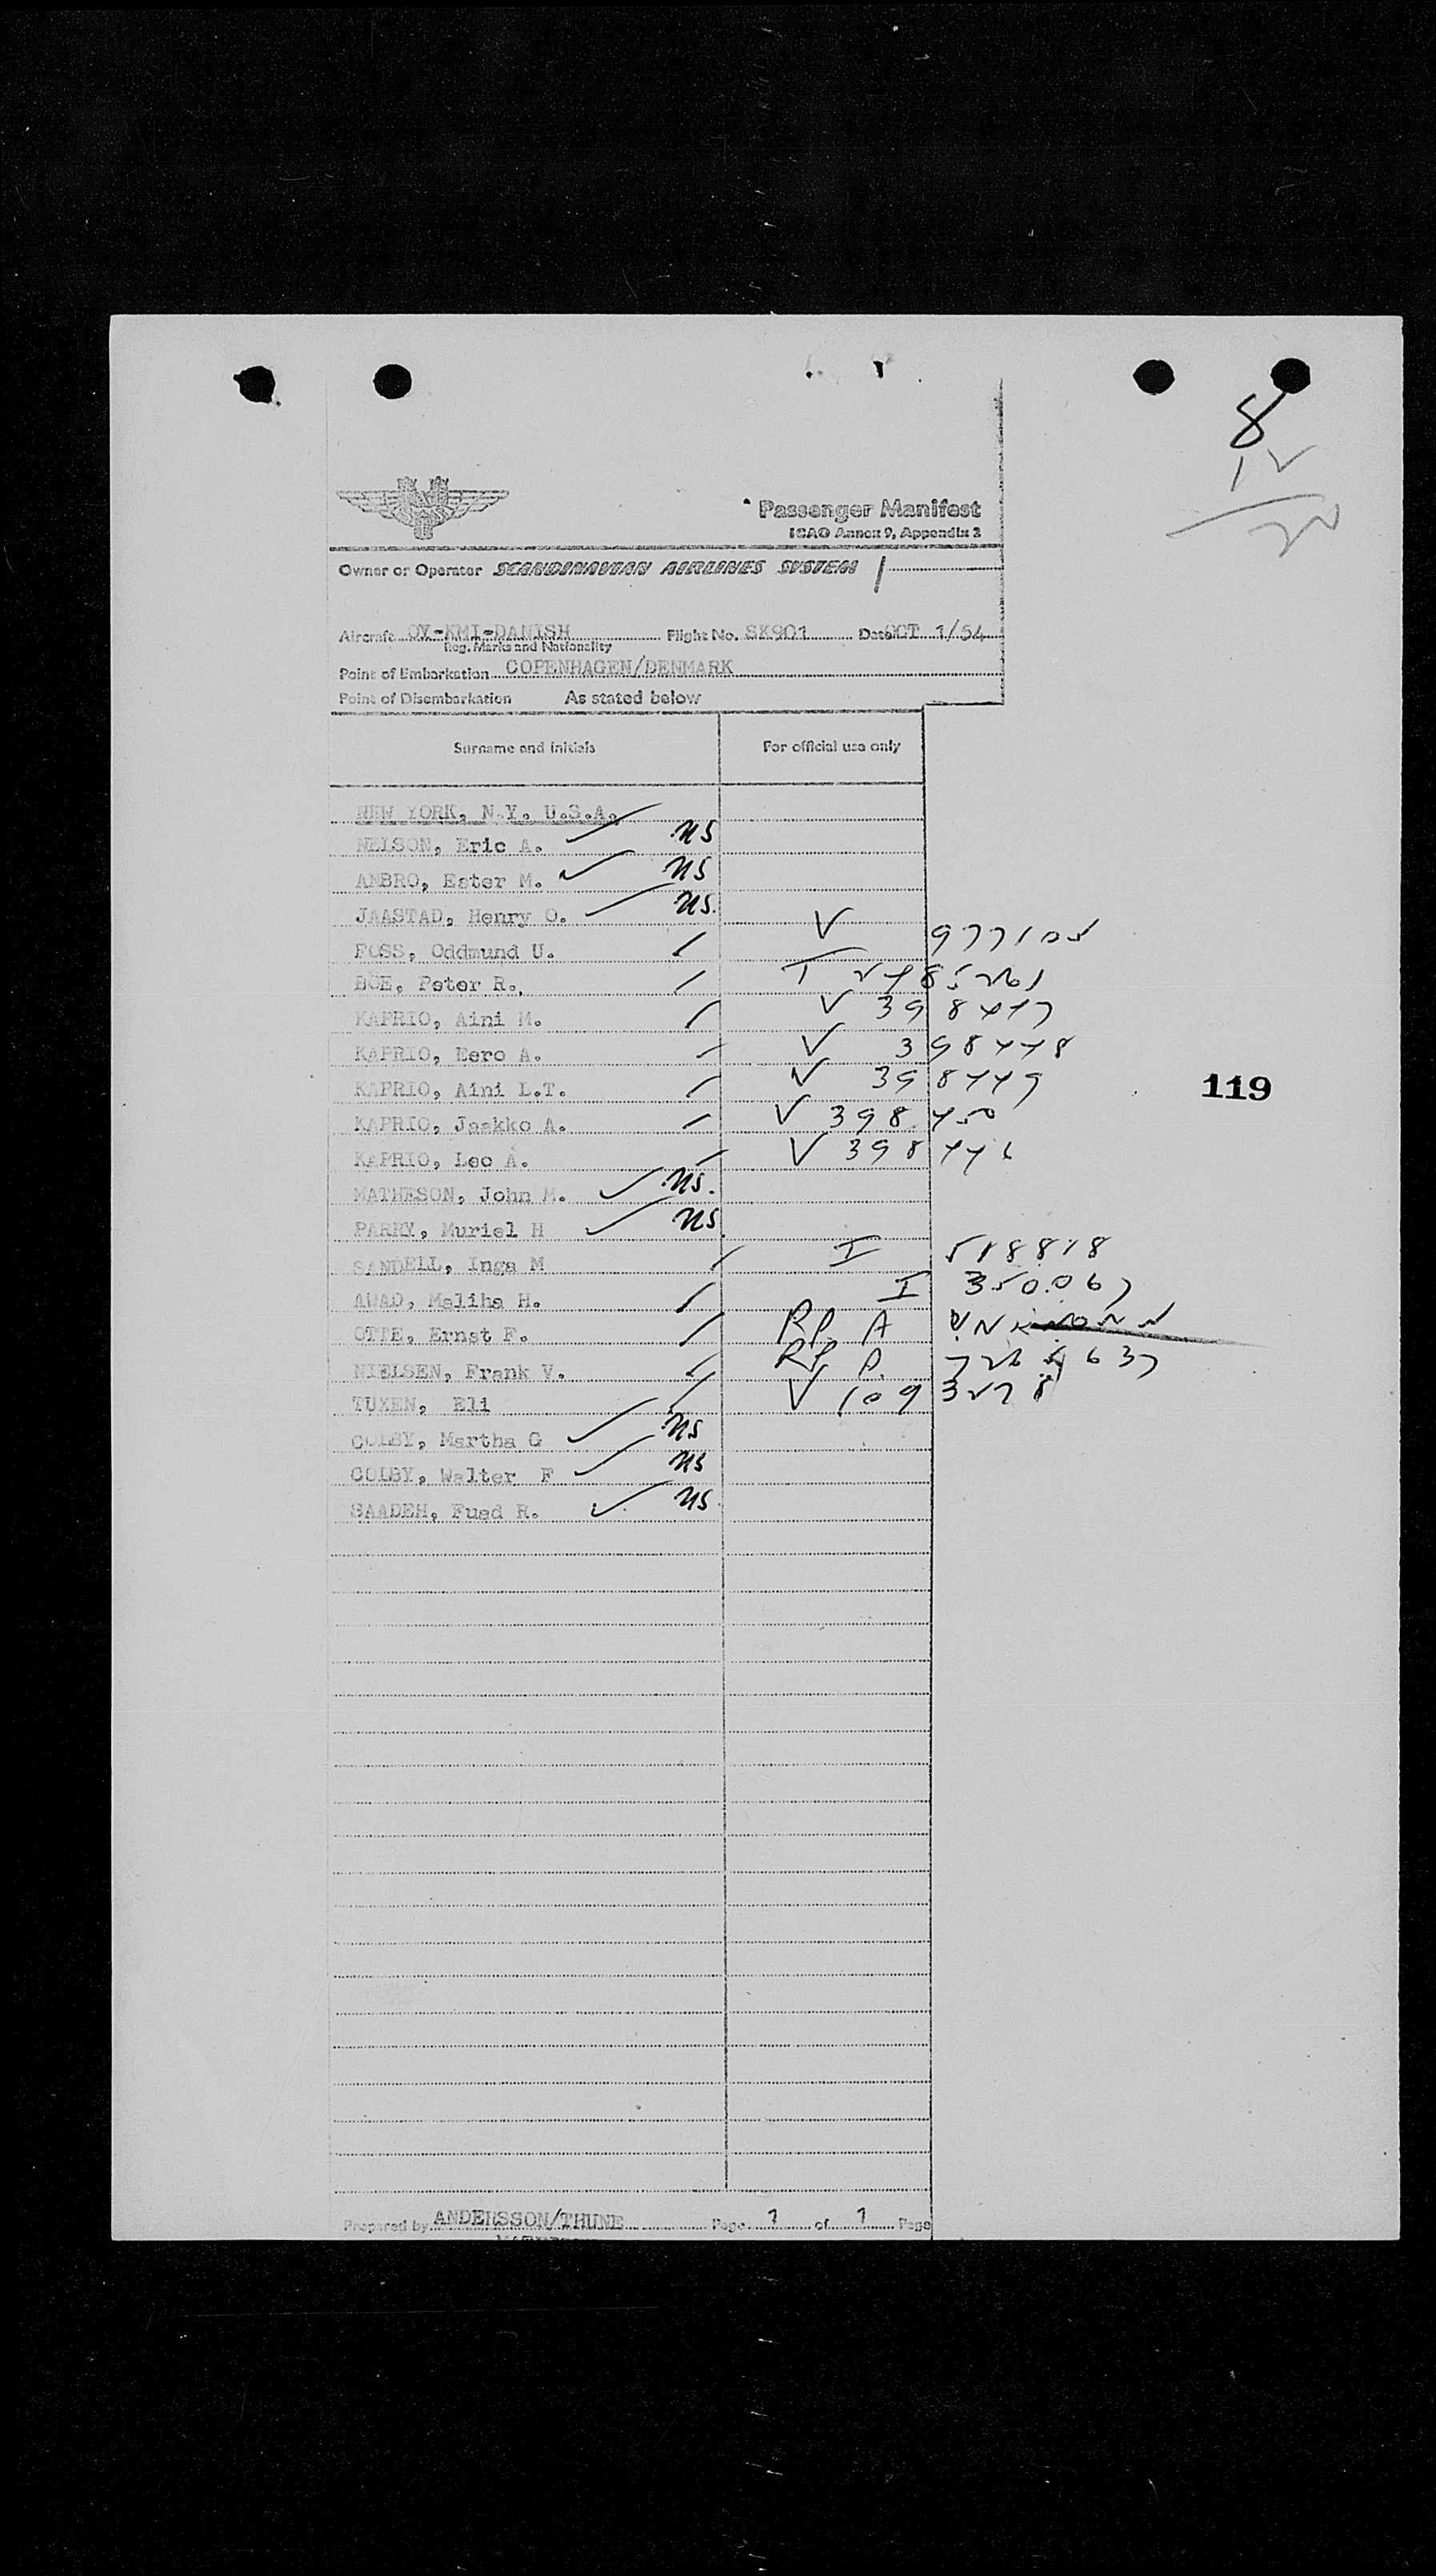 8
12
20
Passenger Manifest
ICAO Annex 9, Appendix 2
Owner or Operator SCANDINAVIAN AIRLINES SYSTEM
Aircraft OY-KMI-DANISH Flight No. SK901 Date OCT 1/54
Reg. Marks and Nationality
Point of Embarkation COPENHAGEN/DENMARK
Point of Disembarkation As stated below
Surname and initials For official use only
NEW YORK, N.Y. U.S.A.
NELSON, Eric A. ✓ US
AMBRO, Ester M. ✓ US
JAASTAD, Henry O. ✓ US.
FOSS, Oddmund U. V 977105
BOE, Peter R. T 2485261
KAPRIO, Aini M. V 398447
KAPRIO, Eero A. V 398448
KAPRIO, Aini L.T. V 398449
119
KAPRIO, Jaakko A. V 398450
KAPRIO, Leo A. V 398446
MATHESON, John M. ✓ US.
PARRY, Muriel H ✓ US
SANDELL, Inga M I 518818
AWAD, Maliha H. I 350067
OTTE, Ernst F. RP. A UNKNOWN
NIELSEN, Frank V. RP. A.
TUXEN, Eli V 1093278
COLBY, Martha G ✓ US
COLBY, Walter F ✓ US
SAADEH, Fuad R. ✓ US
Prepared by ANDERSSON/THUNE Page 1 of 1 Page